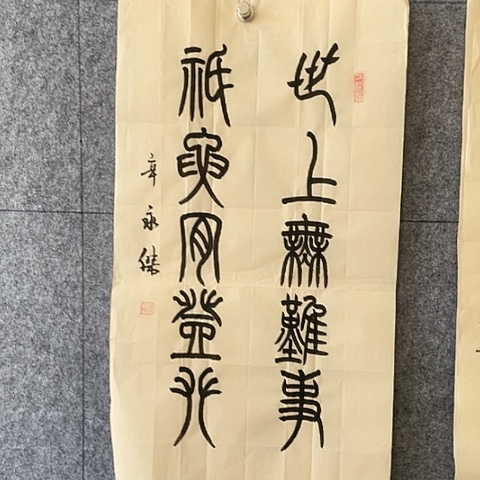 世上無難事
祇要肯登攀
辛永傑